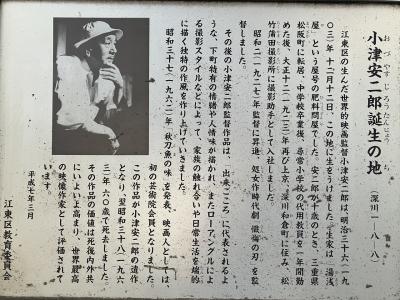 小津安二郎誕生の地
おづやすじろうたんじょうち
（深川一-八-八）
江東区の生んだ世界的映画監督小津安二郎は、明治三十六（一九
〇三）年十二月十二日、この地に生をうけました。生家は「湯浅
屋」という屋号の肥料問屋でした。安二郎が十歳のとき、三重県
松阪町に転居、中学校卒業後、尋常小学校の代用教員を一年間勤
めた後、大正十二（一九二三）年再び上京、深川和倉町に住み、松
竹蒲田撮影所に撮影助手として入社しました。
昭和二（一九二七）年監督に昇進、処女作時代劇「懺悔の刃」を監
督しました。
その後の小津安二郎監督作品は、「出来ごころ」に代表されるよ
うな、下町特有の情緒や人情味が描かれ、またローアングルによ
る撮影スタイルなどによって、家族の触れ合いや日常生活を端的
に描く独特の作風を作り上げていきました。
昭和三十七（一九六二）年「秋刀魚の味」を発表、映画人としては、
初の芸術院会員となりました。
この作品が小津安二郎の遺作
となり、翌昭和三十八（一九六
三）年六〇歳で死去しました。
その作品の価値は死後内外共
にいよいよ高まり、世界最高
の映像作家として評価されて
います。
平成七年三月
江東区教育委員会